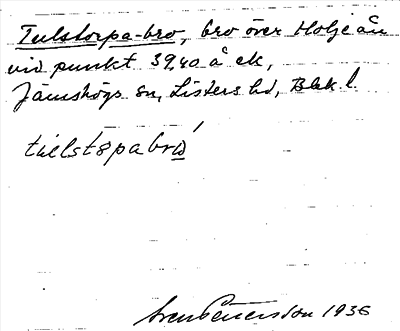 Tulstorpa-bro, bro över Holjeån
vid punkt 39,40 å ek,
Jämshögs sn, Listers hd, Blek. l.
tùlstɔpabrω̄́
Sven Pettersson 1936